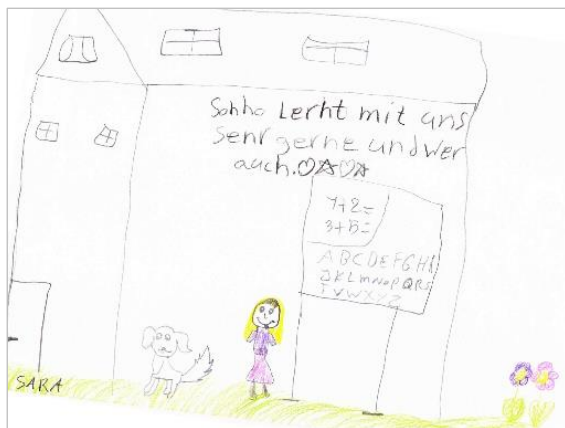 Sohho Lerht mit uns
Sehr gerne und wer
auch.♡☆♡☆
4+2=
3+5=
ABCDEFGHI
JKLMNOPQRS
TVWXYZ
SARA